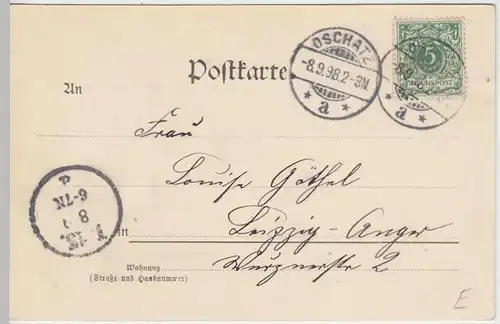 Postkarte
OSCHATZ
-8.9.98.2-3N.
* a *
5
REICHSPOST
An
Frau
Louise Göthel
in Leipzig-Anger
Wurznerstr. 2
Wohnung
(Straße und Hausnummer)
6-7N
8 9
E